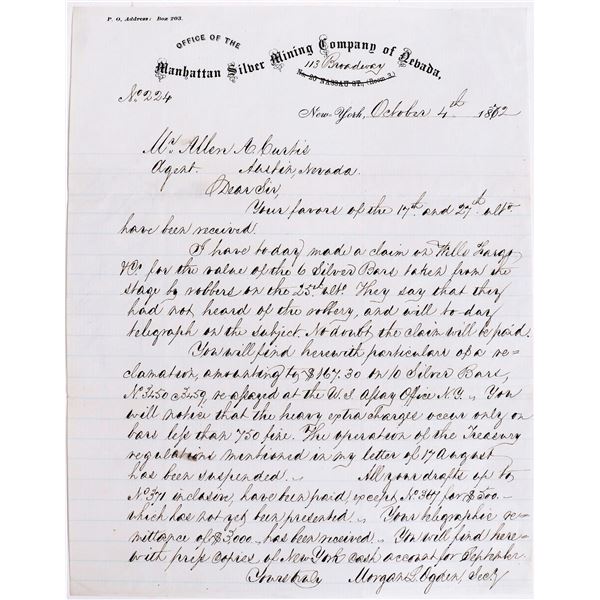 P. O. Address: Box 203.
OFFICE OF THE
Manhattan Silver Mining Company of Nevada,
113 Broadway
No. 20 NASSAU ST., (Room 3.)
No 224
New-York, October 4th 1872
Mr Allen A. Curtis
Agent. Austin, Nevada.
Dear Sir,
Your favors of the 17th and 27th ulto.
have been received.
I have to day made a claim on Wells Fargo
&Co for the value of the 6 Silver Bars taken from the
stage by robbers on the 25th ulto. They say that they
had not heard of the robbery, and will to day
telegraph on the subject. No doubt the claim will be paid.
You will find herewith particulars of a re-
clamation, amounting to $167.30 on 10 Silver Bars,
No 3450 @ 3459, re assayed at the U.S. Assay Office N.Y. You
will notice that the heavy extra charges occur only on
bars less than 750 fine. The operation of the Treasury
regulations mentioned in my letter of 17 August
has been suspended. All your drafts up to
No 371 inclusive, have been paid, except No 367 for $500.-
which has not yet been presented. Your telegraphic re-
mittance of $3,000 has been received. You will find here-
with press copies of New York cash account for September.
Yours truly Morgan L. Ogden, Secy